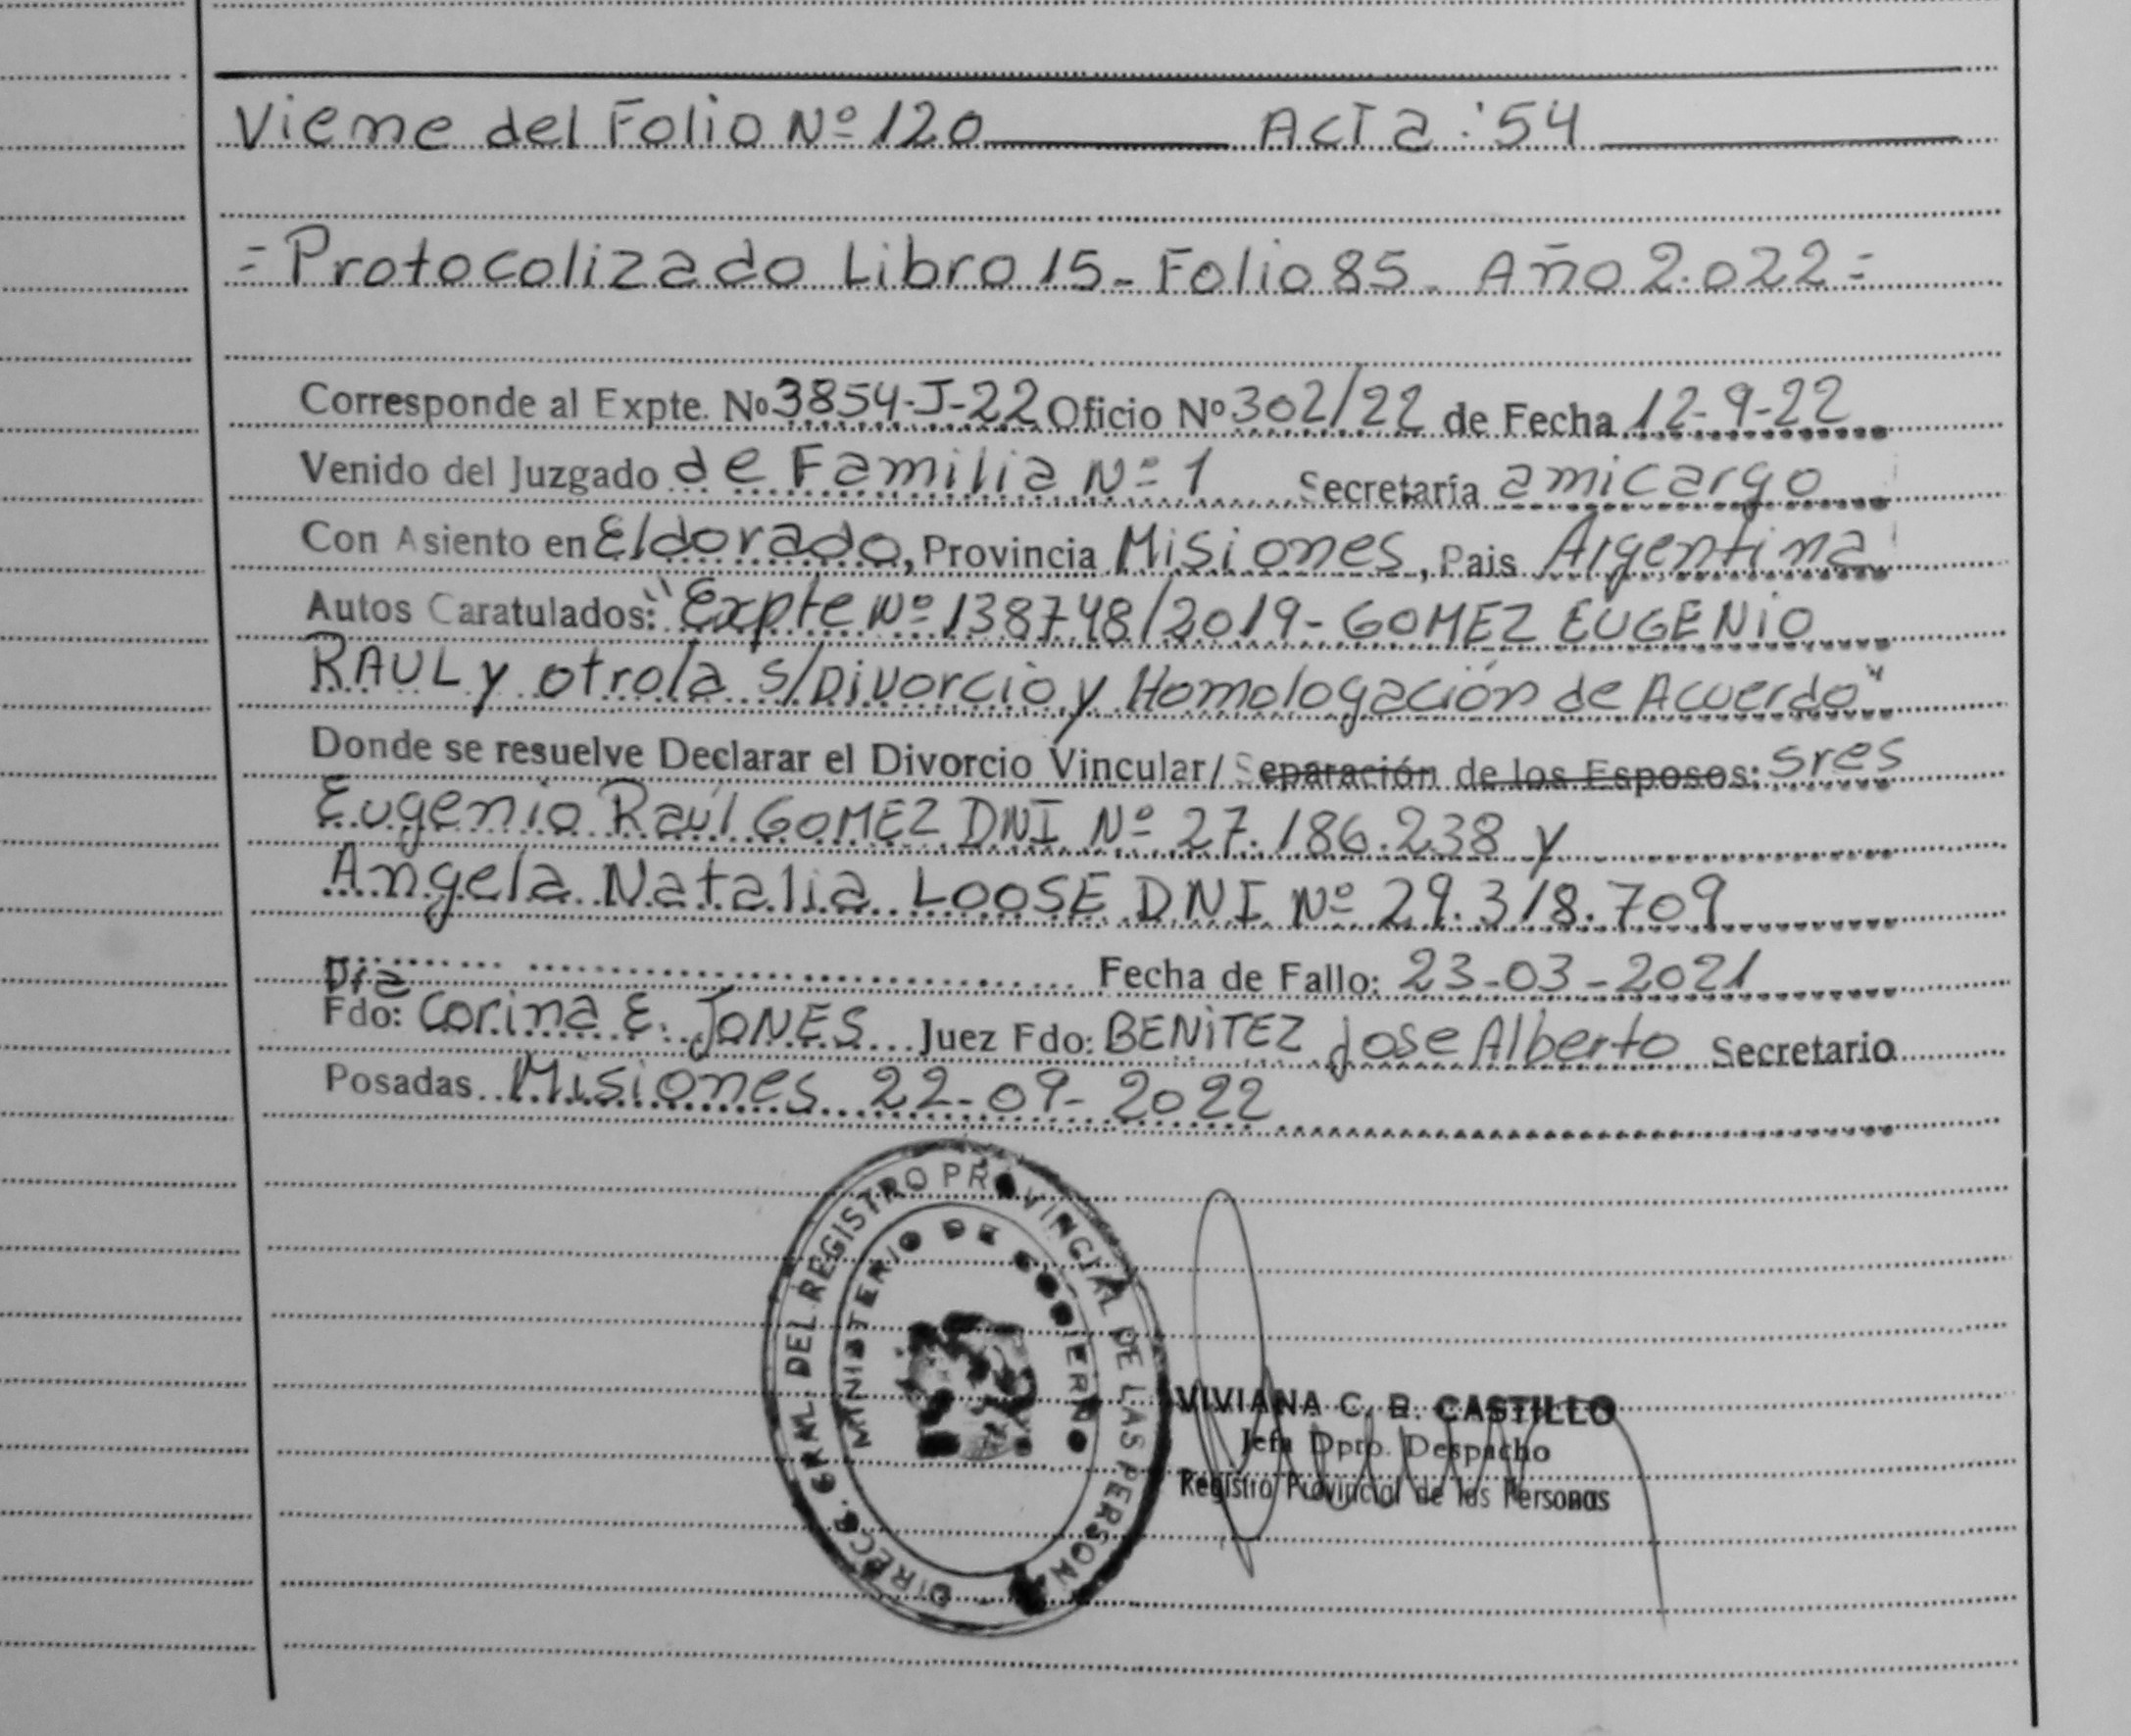 Viene del Folio Nº 120 Acta: 54
= Protocolizado Libro 15 - Folio 85 - Año 2.022 =
Corresponde al Expte. Nº 3854-J-22 Oficio Nº 302/22 de Fecha 12-9-22
Venido del Juzgado de Familia Nº 1 Secretaría a mi cargo
Con Asiento en Eldorado, Provincia Misiones, Pais Argentina
Autos Caratulados: "Expte Nº 138748/2019 - GOMEZ EUGENIO
RAUL y otro/a s/Divorcio y Homologación de Acuerdo"
Donde se resuelve Declarar el Divorcio Vincular/ Separación de los Esposos: sres
Eugenio Raúl GOMEZ DNI Nº 27.186.238 y
Angela Natalia LOOSE DNI Nº 29.318.709
Fecha de Fallo: 23-03-2021
Dra
Fdo: Corina E. JONES Juez Fdo: BENITEZ Jose Alberto Secretario
Posadas Misiones 22-09-2022
DIRECC. GRAL. DEL REGISTRO PROVINCIAL DE LAS PERSONAS
MINISTERIO DE GOBIERNO
VIVIANA C. B. CASTILLO
Jefa Dpto. Despacho
Registro Provincial de las Personas